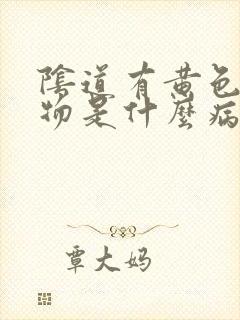 陰道有黄色
物是什麼病
覃大妈